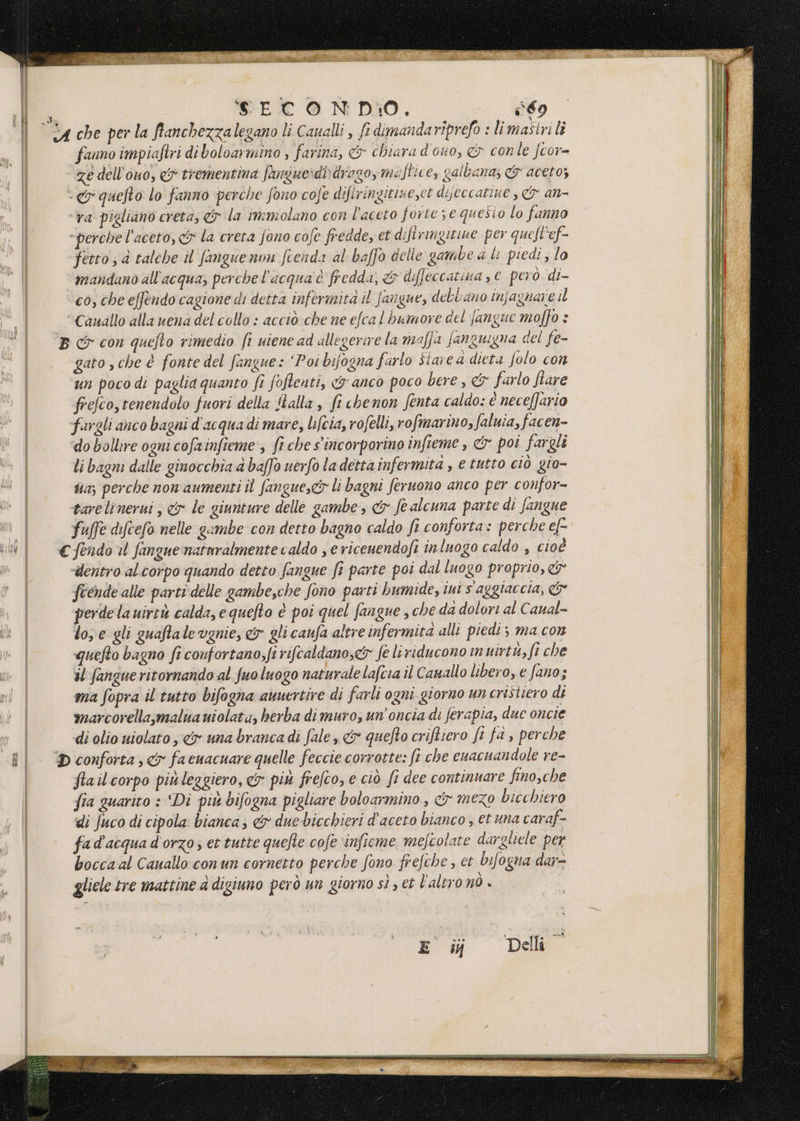 SECONDO. 69
A che per la ſtanchezza legano li Caualli, ſi dimanda ripreſo : li maſtri li
fanno impiaſtri di boloarmino, farina, & chiara d'ouo, & con le ſcor-
ze dell'ouo, & trementina ſangue di drago, maſtice, galbana, & aceto,
& queſto lo fanno perche ſono coſe diſtringitiue, et diſeccatiue, & an-
ra pigliano creta, & la immolano con l'aceto forte; e queſto lo fanno
perche l'aceto, & la creta ſono coſe fredde, et diſtringitiue per queſt'ef-
fetto, à talche il ſangue non ſcenda al baſſo delle gambe a li piedi, lo
mandano all'acqua, perche l'acqua è fredda, & diſſeccatiua, e però di-
co, che eſſendo cagione di detta infermità il ſangue, debbano inſagnare il
Cauallo alla uena del collo : acciò che ne eſca l'humore del ſangue moſſo :
B & con queſto rimedio ſi uiene ad allegerire la maſſa ſanguigna del fe-
gato, che è fonte del ſangue : Poi biſogna farlo ſtare à dieta ſolo con
un poco di paglia quanto ſi ſoſtenti, & anco poco bere, & farlo ſtare
freſco, tenendolo fuori della ſtalla, ſi che non ſenta caldo: è neceſſario
fargli anco bagni d'acqua di mare, liſcia, roſelli, roſmarino, ſaluia, facen-
do bollire ogni coſa inſieme, ſi che s'incorporino inſieme, & poi fargli
li bagni dalle ginocchia à baſſo uerſo la detta infermità, e tutto ciò gio-
ua; perche non aumenti il ſangue, & li bagni ſeruono anco per confor-
tare li nerui, & le giunture delle gambe, & ſe alcuna parte di ſangue
fuſſe diſceſo nelle gambe con detto bagno caldo ſi conforta : perche eſ-
C ſendo il ſangue naturalmente caldo, e riceuendoſi in luogo caldo, cioè
dentro al corpo quando detto ſangue ſi parte poi dal luogo proprio, &
ſcende alle parti delle gambe, che ſono parti humide, iui s'aggiaccia, &
perde la uirtù calda, e queſto è poi quel ſangue, che dà dolori al Caual-
lo, e gli guaſta le vgnie, & gli cauſa altre infermità alli piedi; ma con
queſto bagno ſi confortano, ſi riſcaldano, & ſe li riducono in uirtù, ſi che
il ſangue ritornando al ſuo luogo naturale laſcia il Cauallo libero, e ſano;
ma ſopra il tutto biſogna auuertire di farli ogni giorno un criſtiero di
marcorella, malua uiolata, herba di muro, un'oncia di ſerapia, due oncie
di olio uiolato, & una branca di ſale, & queſto criſtiero ſi fà, perche
D conforta, & fa euacuare quelle feccie corrotte : ſi che euacuandole re-
ſta il corpo più leggiero, & più freſco, e ciò ſi dee continuare fino, che
ſia guarito : Di più biſogna pigliare boloarmino, & mezo bicchiero
di ſuco di cipola bianca, & due bicchieri d'aceto bianco, et una caraf-
fa d'acqua d'orzo, et tutte queſte coſe inſieme meſcolate dargliele per
bocca al Cauallo con un cornetto perche ſono freſche, et biſogna dar-
gliele tre mattine à digiuno però un giorno sì, et l'altro nò.
E iij Delli